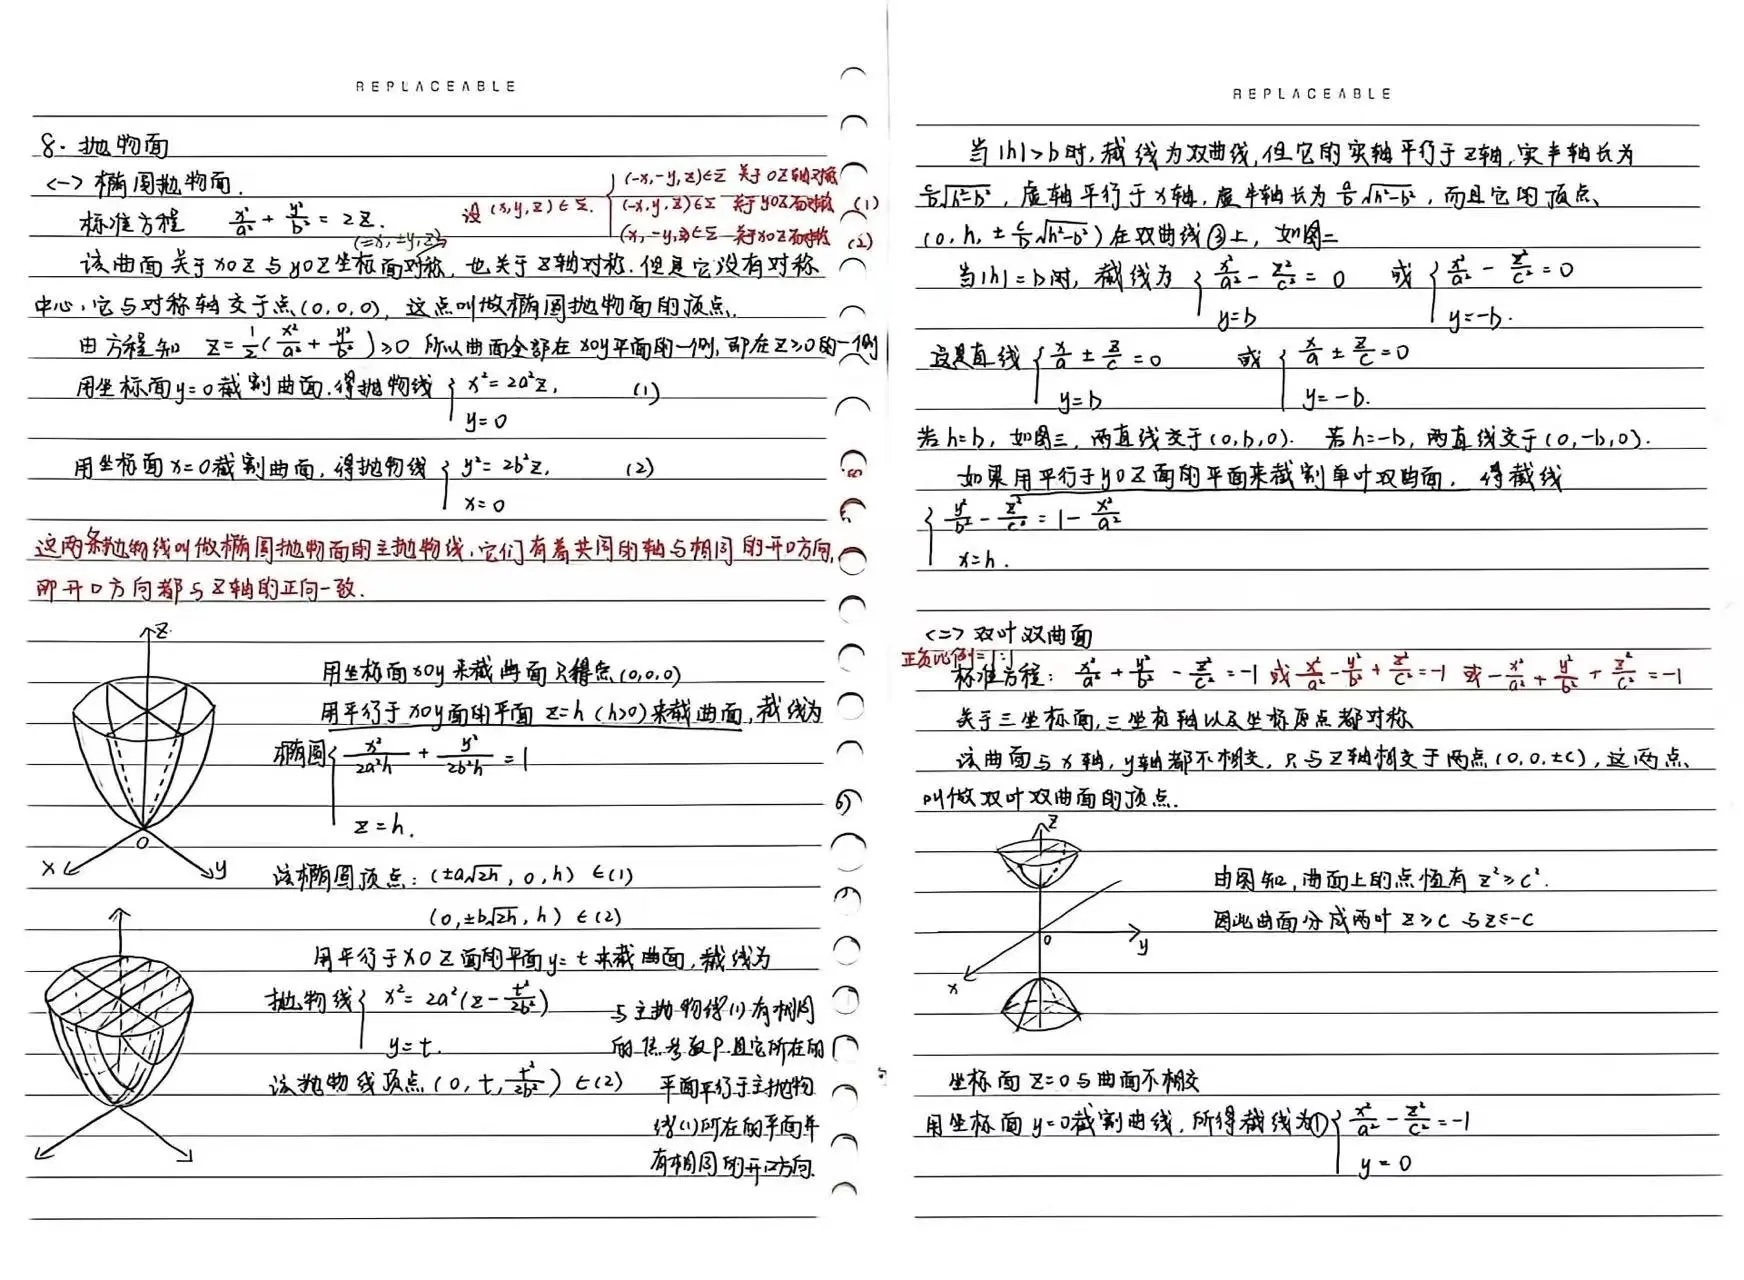 REPLACEABLE
8. 抛物面
<一> 椭圆抛物面.
标准方程 x²/a² + y²/b² = 2z.
(±x, ±y, z)
设 (x,y,z)∈Σ. { (-x,-y,z)∈Σ 关于OZ轴对称
(-x,y,z)∈Σ 关于yOZ面对称 (1)
(x,-y,z)∈Σ 关于xOZ面对称 (2)
该曲面关于xOZ与yOZ坐标面对称, 也关于Z轴对称. 但是它没有对称
中心, 它与对称轴交于点(0,0,0), 这点叫做椭圆抛物面的顶点.
由方程知 z = 1/2(x²/a² + y²/b²) ≥0 所以曲面全部在xoy平面的一侧, 即在z≥0的一侧
用坐标面y=0截割曲面. 得抛物线 { x²=2a²z, (1)
y=0
用坐标面x=0截割曲面, 得抛物线 { y²=2b²z, (2)
x=0
这两条抛物线叫做椭圆抛物面的主抛物线, 它们有着共同的轴与相同的开口方向,
即开口方向都与Z轴的正向一致.
z
x
o
y
用坐标面xoy来截曲面只得点(0,0,0)
用平行于xoy面的平面 z=h (h>0)来截曲面, 截线为
椭圆 { x²/2a²h + y²/2b²h = 1
z=h.
该椭圆顶点: (±a√2h, 0, h) ∈(1)
(0, ±b√2h, h) ∈(2)
用平行于xOZ面的平面y=t来截曲面, 截线为
抛物线 { x²=2a²(z - t²/2b²)
y=t.
该抛物线顶点(0, t, t²/2b²) ∈(2)
与主抛物线(1)有相同
的焦参数P.且它所在的
平面平行于主抛物
线(1)所在的平面并
有相同的开口方向.
REPLACEABLE
当|h|>b时, 截线为双曲线, 但它的实轴平行于Z轴, 实半轴长为
c/b√h²-b², 虚轴平行于x轴, 虚半轴长为 a/b√h²-b², 而且它的顶点
(0, h, ± c/b√h²-b²)在双曲线③上, 如图二
当|h|=b时, 截线为 { x²/a² - z²/c² = 0 或 { x²/a² - z²/c² = 0
y=b y=-b.
这是直线 { x/a ± z/c = 0 或 { x/a ± z/c = 0
y=b y=-b.
若h=b, 如图三, 两直线交于(0,b,0). 若h=-b, 两直线交于(0,-b,0).
如果用平行于yOZ面的平面来截割单叶双曲面, 得截线
{ y²/b² - z²/c² = 1 - x²/a²
x=h.
<二> 双叶双曲面
正负比例=1:1
标准方程: x²/a² + y²/b² - z²/c² = -1 或 x²/a² - y²/b² + z²/c² = -1 或 -x²/a² + y²/b² + z²/c² = -1
关于三坐标面, 三坐标轴以及坐标原点都对称
该曲面与x轴, y轴都不相交, 只与Z轴相交于两点(0,0,±c), 这两点
叫做双叶双曲面的顶点.
z
o
y
x
由图知, 曲面上的点恒有 z²≥c².
因此曲面分成两叶 z≥c 与z≤-c
坐标面 z=0与曲面不相交
用坐标面y=0截割曲线, 所得截线为① { x²/a² - z²/c² = -1
y=0